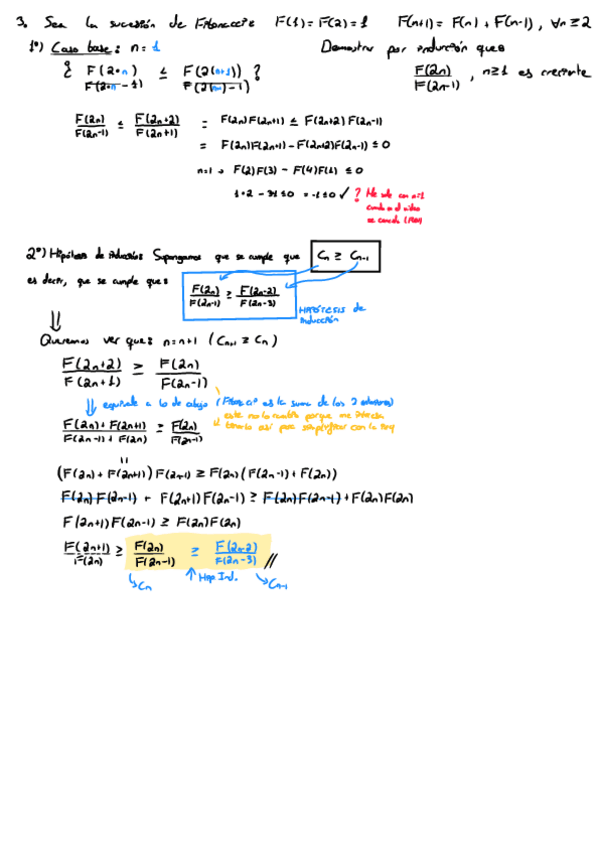 3. Sea la sucesión de Fibonacci: F(1)=F(2)=1 F(n+1) = F(n) + F(n-1), ∀n ≥ 2
1º) Caso base: n = 1 Demostrar por inducción que:
¿ F(2·n) / F(2·n-1) ≤ F(2(n+1)) / F(2(n+1)-1) ? F(2n) / F(2n-1), n≥1 es creciente
F(2n) / F(2n-1) ≤ F(2n+2) / F(2n+1) = F(2n)F(2n+1) ≤ F(2n+2)F(2n-1)
= F(2n)F(2n+1) - F(2n+2)F(2n-1) ≤ 0
n=1 → F(2)F(3) - F(4)F(1) ≤ 0
1·2 - 3·1 ≤ 0 = -1 ≤ 0 ✓ ? Me vale con n=1
se cumple
2º) Hipótesis de inducción: Supongamos que se cumple que Cn ≥ Cn-1
es decir, que se cumple que: F(2n) / F(2n-1) ≥ F(2n-2) / F(2n-3)
HIPÓTESIS DE INDUCCIÓN
⇓
Queremos ver que: n=n+1 (Cn+1 ≥ Cn)
F(2n+2) / F(2n+1) ≥ F(2n) / F(2n-1)
⇓ equivale a lo de abajo (Fibonacci es la suma de los 2 anteriores)
este no lo cambio porque me interesa
tenerlo así para simplificar con la
F(2n) + F(2n+1) / F(2n-1) + F(2n) ≥ F(2n) / F(2n-1)
=
(F(2n) + F(2n+1)) F(2n-1) ≥ F(2n) (F(2n-1) + F(2n))
F(2n)F(2n-1) + F(2n+1)F(2n-1) ≥ F(2n)F(2n-1) + F(2n)F(2n)
F(2n+1)F(2n-1) ≥ F(2n)F(2n)
F(2n+1) / F(2n) ≥ F(2n) / F(2n-1) ≥ F(2n-2) / F(2n-3) //
Cn Hip Ind. Cn-1